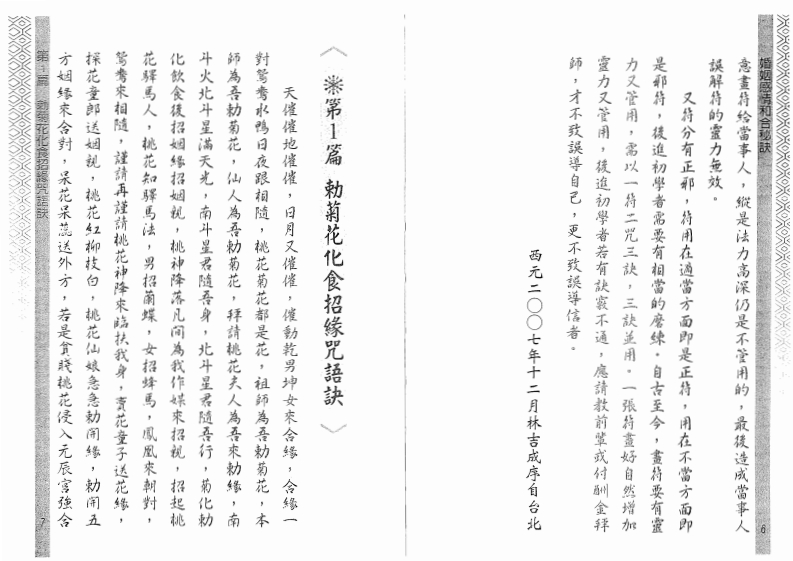 婚姻感情和合秘訣
意畫符給當事人，縱是法力高深仍是不管用的，最後造成當事人
誤解符的靈力無效。
又符分有正邪，符用在適當方面即是正符，用在不當方面即
是邪符，後進初學者需要有相當的磨練。自古至今，畫符要有靈
力又管用，需以一符二咒三訣，三訣並用。一張符畫好自然增加
靈力又管用，後進初學者若有訣竅不通，應請教前輩或付酬金拜
師，才不致誤導自己，更不致誤導信者。
西元二〇〇七年十二月林吉成序自台北
6
〈※第1篇 勅菊花化食招缘咒語訣〉
天催催地催催，日月又催催，催動乾男坤女來合緣，合緣一
對鴛鴦水鴨日夜跟相隨，桃花菊花都是花，祖師為吾勅菊花，本
師為吾勅菊花，仙人為吾勅菊花，拜請桃花夫人為吾來勅緣，南
斗火北斗星滿天光，南斗星君隨吾身，北斗星君隨吾行，菊化勅
化飲食後招姻緣招姻親，桃神降落凡間為我作媒來招親，招起桃
花驛馬人，桃花知驛馬法，男招蘭蝶，女招蜂馬，鳳凰來朝對，
鴛鴦來相隨，謹請再謹請桃花神降來臨扶我身，賣花童子送花緣，
採花童郎送姻親，桃花紅柳枝白，桃花仙娘急急勅開緣，勅開五
方姻緣來合對，呆花呆蕊送外方，若是貧賤桃花侵入元辰宮強合
第1篇 勅菊花化食招緣咒語訣
7